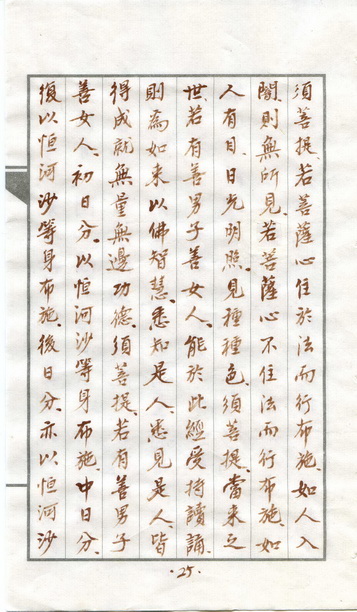 須菩提、若菩薩心住於法而行布施、如人入
闇、則無所見、若菩薩心不住法而行布施、如
人有目、日光明照、見種種色、須菩提、當來之
世、若有善男子善女人、能於此經受持讀誦、
則為如來以佛智慧、悉知是人、悉見是人、皆
得成就無量無邊功德、須菩提、若有善男子
善女人、初日分、以恒河沙等身布施、中日分、
復以恒河沙等身布施、後日分、亦以恒河沙
·25·